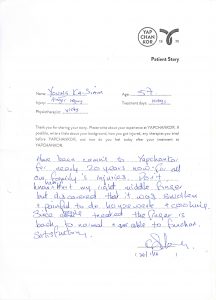 YAP
CHAN
KOR
Patient Story
Name: Young Ka-
Age: 57
Injury: finger injury
Treatment days:
Physiotherapist:
Thank you for sharing your story. Please write about your experience at YAPCHANKOR. If
possible, write a little about your background, how you got injured, any therapies you tried
before YAPCHANKOR, and how do you feel today after your treatment at
YAPCHANKOR.
Have been coming to Yapchankor
for nearly 20 years now for all
our family's injuries. Don't
know how my right middle finger
but discovered that it was swollen
& painful to do housework & cooking.
Since treated the finger is
back to normal & able to function
satisfactory.